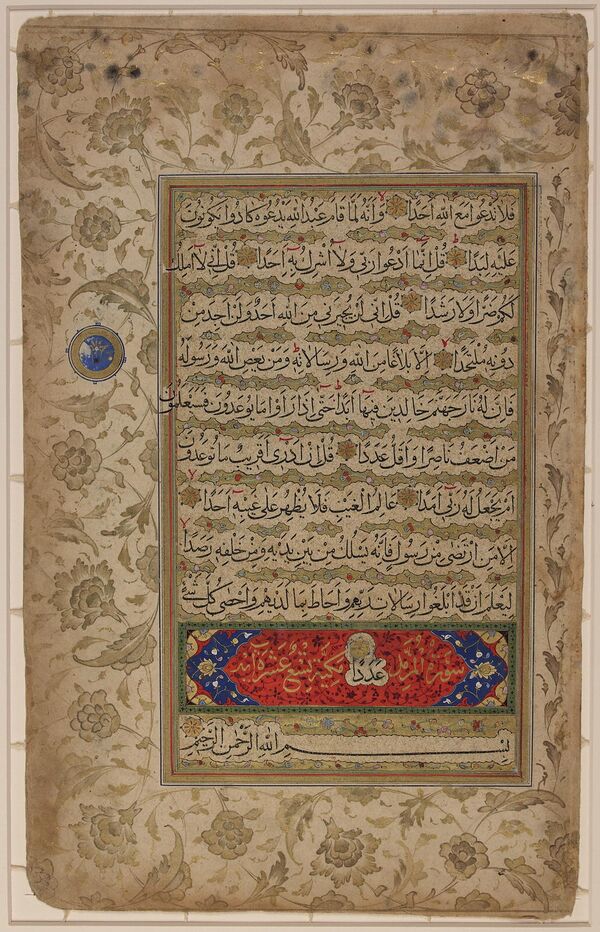 فلا تدعوا مع الله أحدا وأنه لما قام عبد الله يدعوه كادوا يكونون
عليه لبدا قل إنما أدعوا ربي ولا أشرك به أحدا قل إني لا أملك
لكم ضرا ولا رشدا قل إني لن يجيرني من الله أحد ولن أجد من
دونه ملتحدا إلا بلاغا من الله ورسالاته ومن يعص الله ورسوله
فإن له نار جهنم خالدين فيها أبدا حتى إذا رأوا ما يوعدون فسيعلمون
من أضعف ناصرا وأقل عددا قل إن أدري أقريب ما توعدون
أم يجعل له ربي أمدا عالم الغيب فلا يظهر على غيبه أحدا
إلا من ارتضى من رسول فإنه يسلك من بين يديه ومن خلفه رصدا
ليعلم أن قد أبلغوا رسالات ربهم وأحاط بما لديهم وأحصى كل شيء
عددا
سورة المزمل مكية تسع عشرة آية
بسم الله الرحمن الرحيم